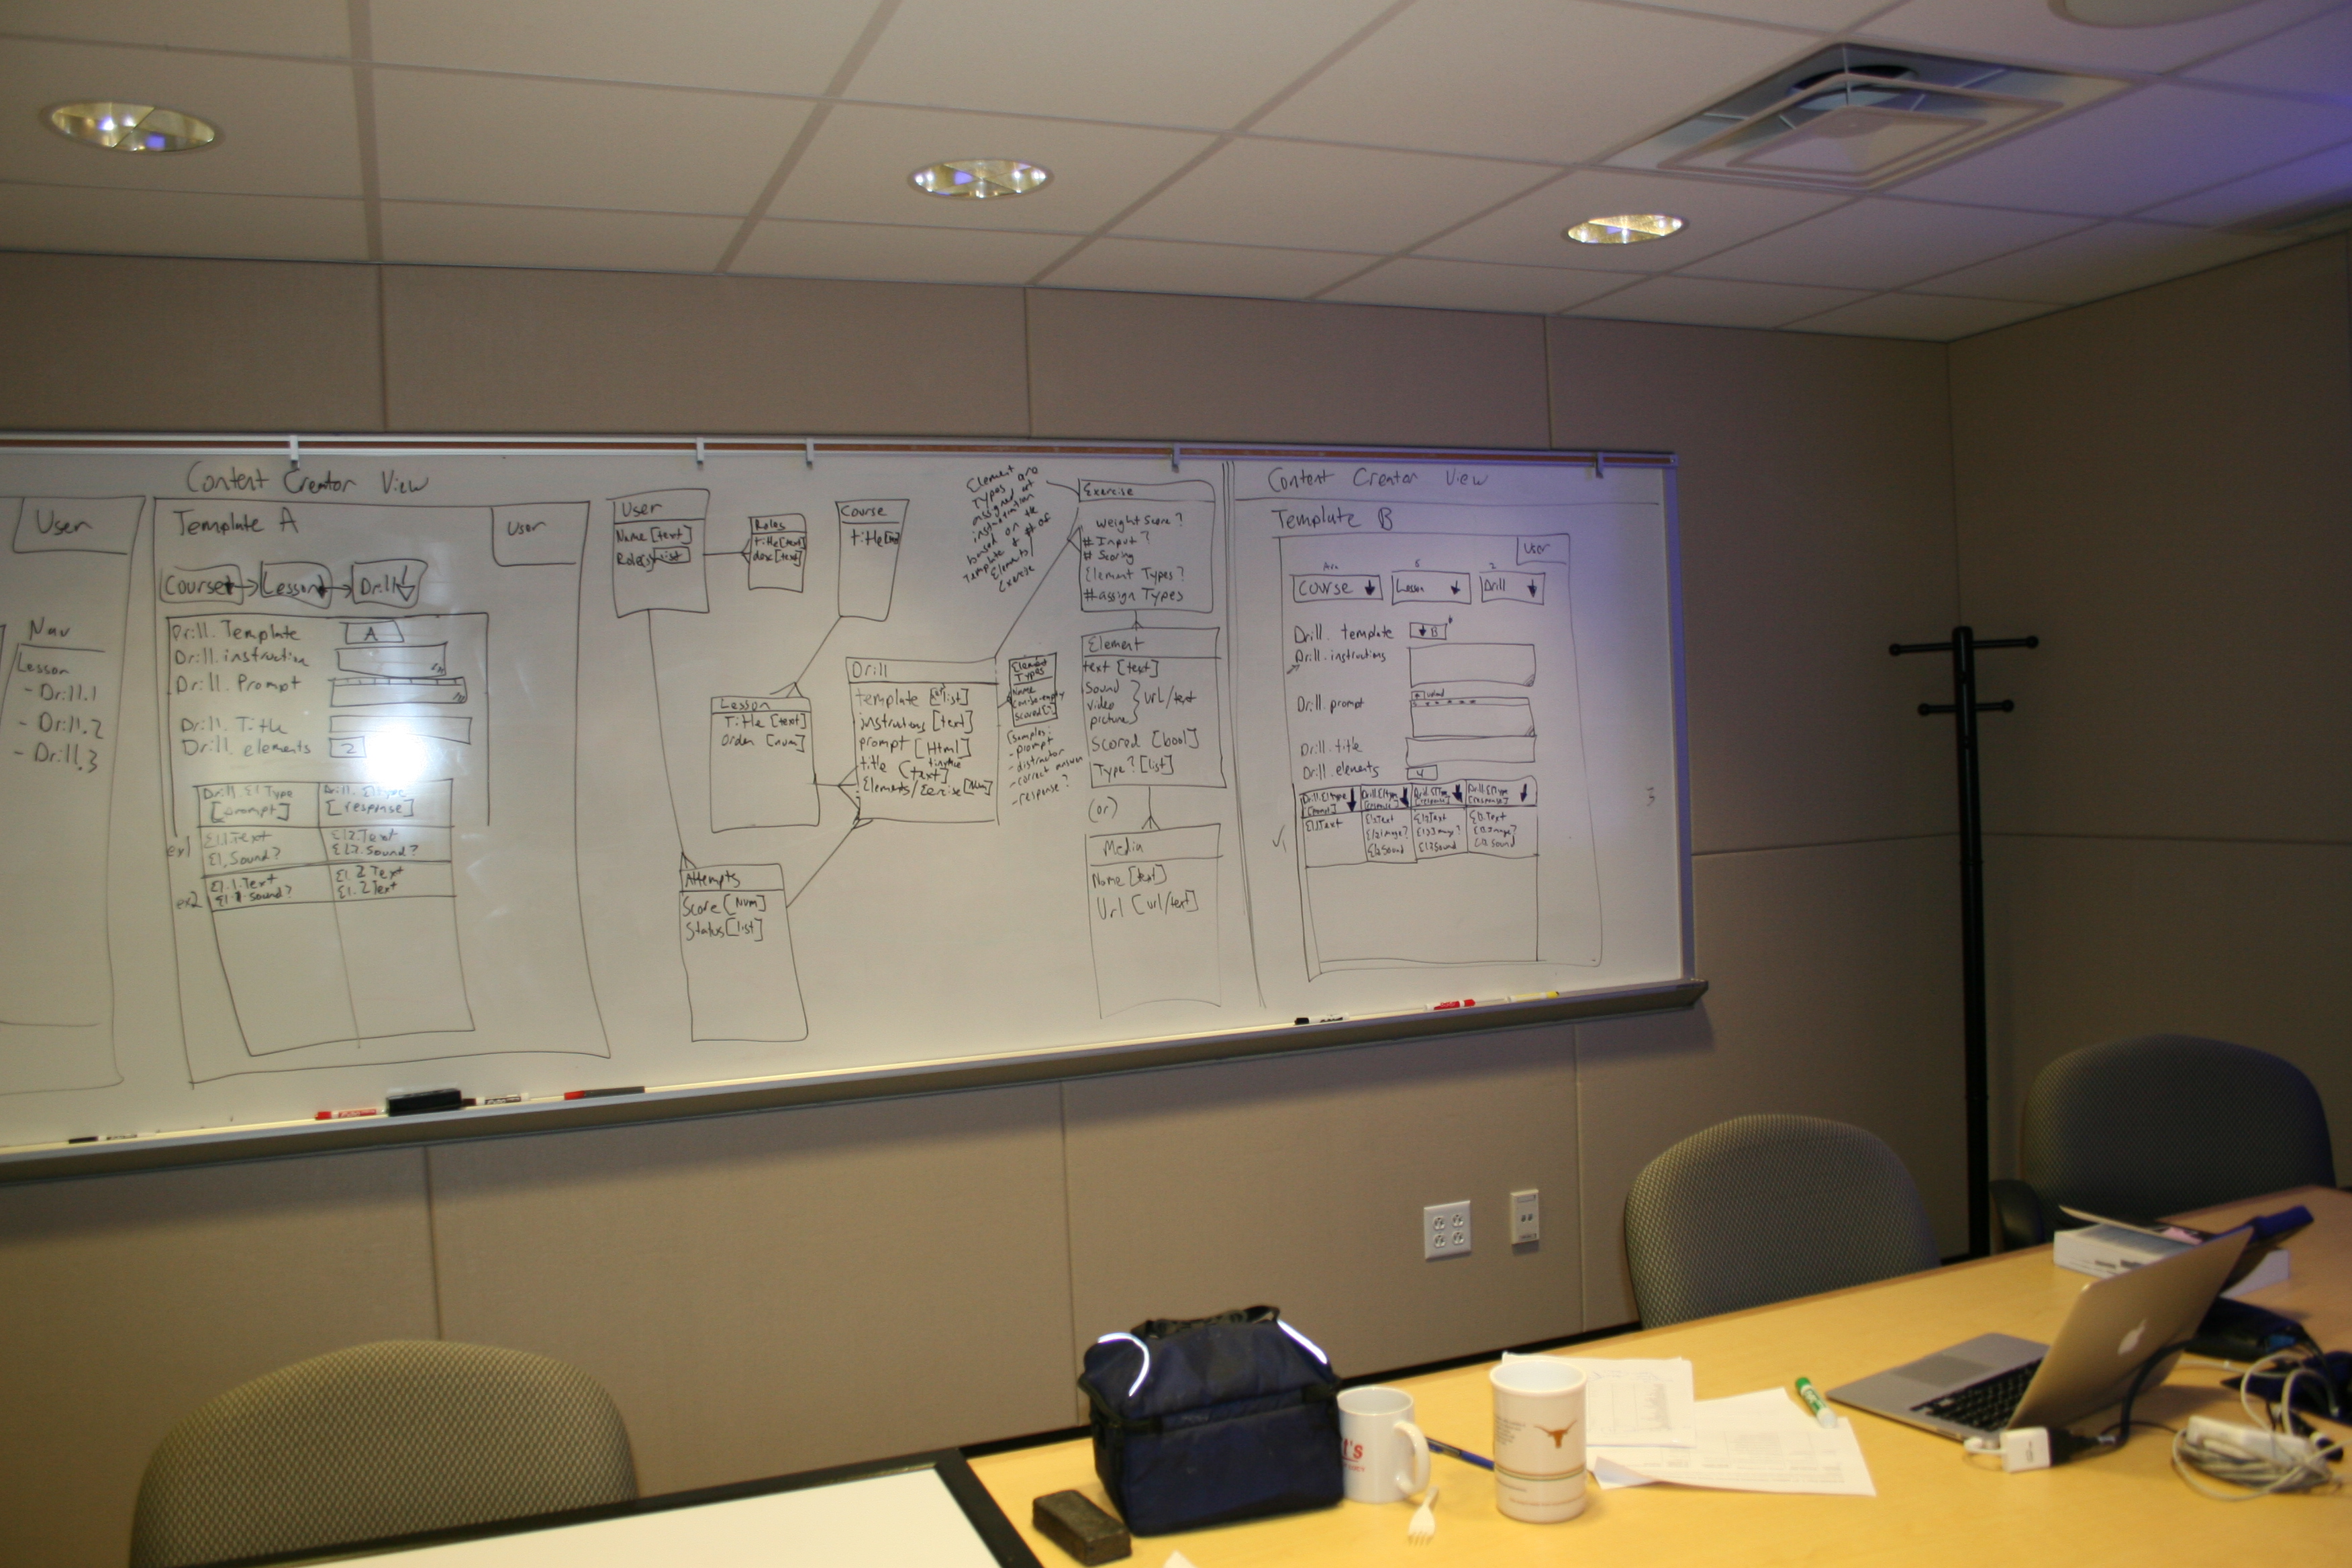 User
Nav
Lesson
- Drill.1
- Drill.2
- Drill.3
Content Creator View
Template A
User
Course
Lesson
Drill
Drill.Template
A
Drill.instruction
Drill.Prompt
Drill.Title
Drill.elements
2
Drill.ElType
[prompt]
Drill.Eltype
[response]
ex1
El1.Text
El2.Text
El1.Sound?
El2.Sound?
ex2
El.1.Text
El.2 Text
El.1.Sound?
El.2 Text
User
Name [text]
Roles
list
Roles
title [text]
desc [text]
Course
title
Lesson
Title [text]
Order [num]
Attempts
Score [Num]
Status [list]
Drill
template
list]
instructions [text]
prompt [Html]
title
[text]
Elements/Exercise [Num]
Element
Types
Name
Scored [
Samples:
- prompt
- distractor
- correct answer
- response?
Element
Types are
assigned at
based on the
Template & # of
Elements/
Exercise
Exercise
weight Score?
# Input?
# Scoring
Element Types?
# assign Types
Element
text [text]
Sound
video
picture
url/text
Scored [bool]
Type? [list]
(or)
Media
Name [text]
Url [url/text]
Content Creator View
Template B
User
5
2
Course
Lesson
Drill
Drill. template
B
Drill. instructions
Drill. prompt
upload
Drill. title
Drill. elements
4
Drill.Eltype
Drill.Eltype
Drill.ElType
Drill.Eltype
[prompt]
[response]
[response]
[response]
El1.Text
El2Text
El3Text
El2image?
El3Image?
El2Sound
El3Sound
3